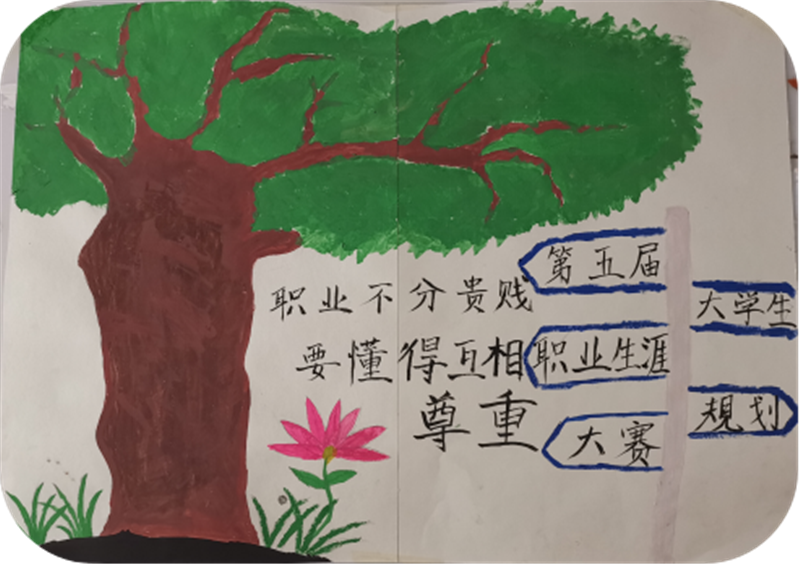 职业不分贵贱
要懂得互相
尊重
第五届
大学生
职业生涯
规划
大赛